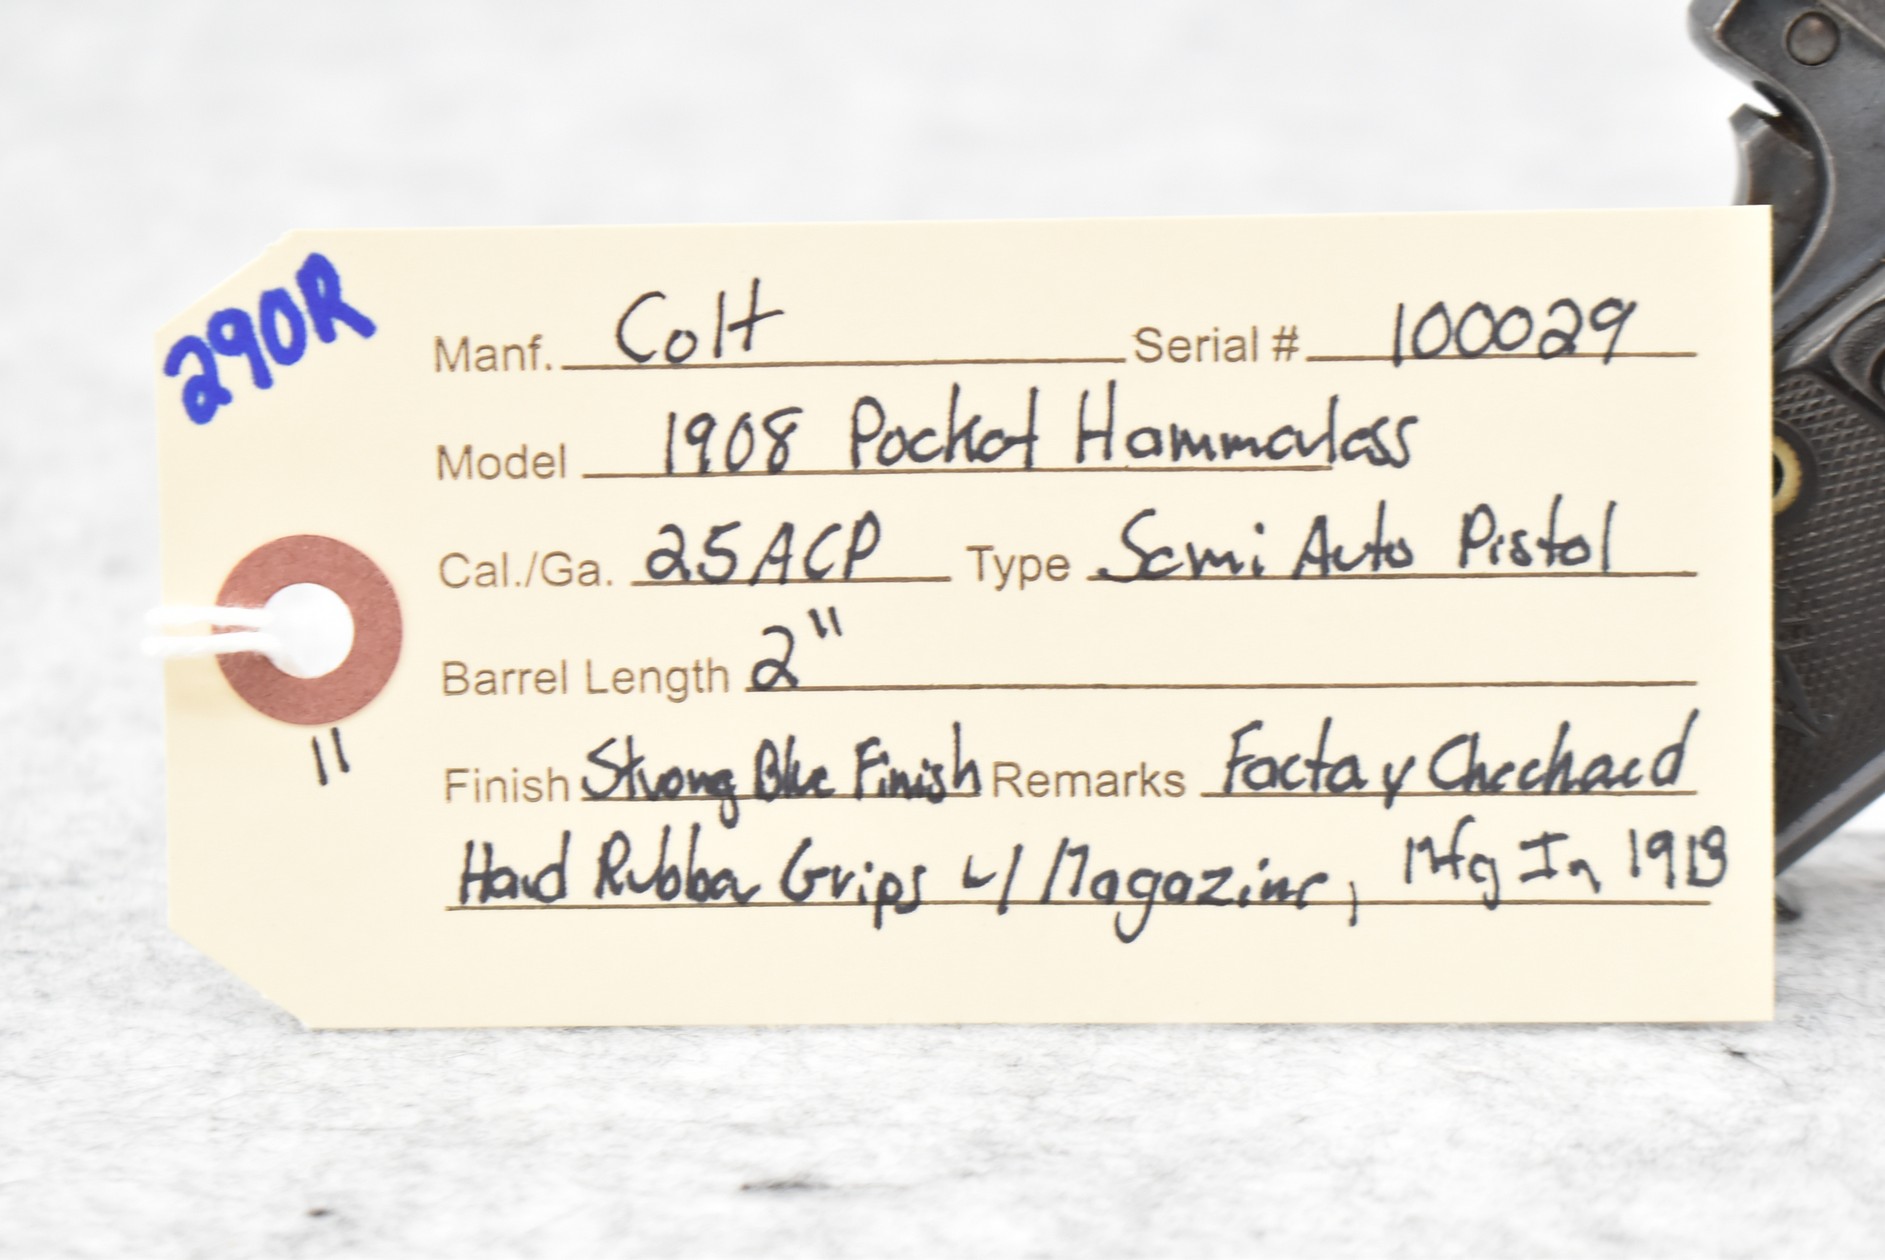 290R
Manf. Colt Serial # 100029
Model 1908 Pocket Hammerless
Cal./Ga. 25 ACP Type Semi Auto Pistol
Barrel Length 2"
Finish Strong Blue Finish Remarks Factory Checkered
Hard Rubber Grips w/ Magazine, Mfg In 1913
11